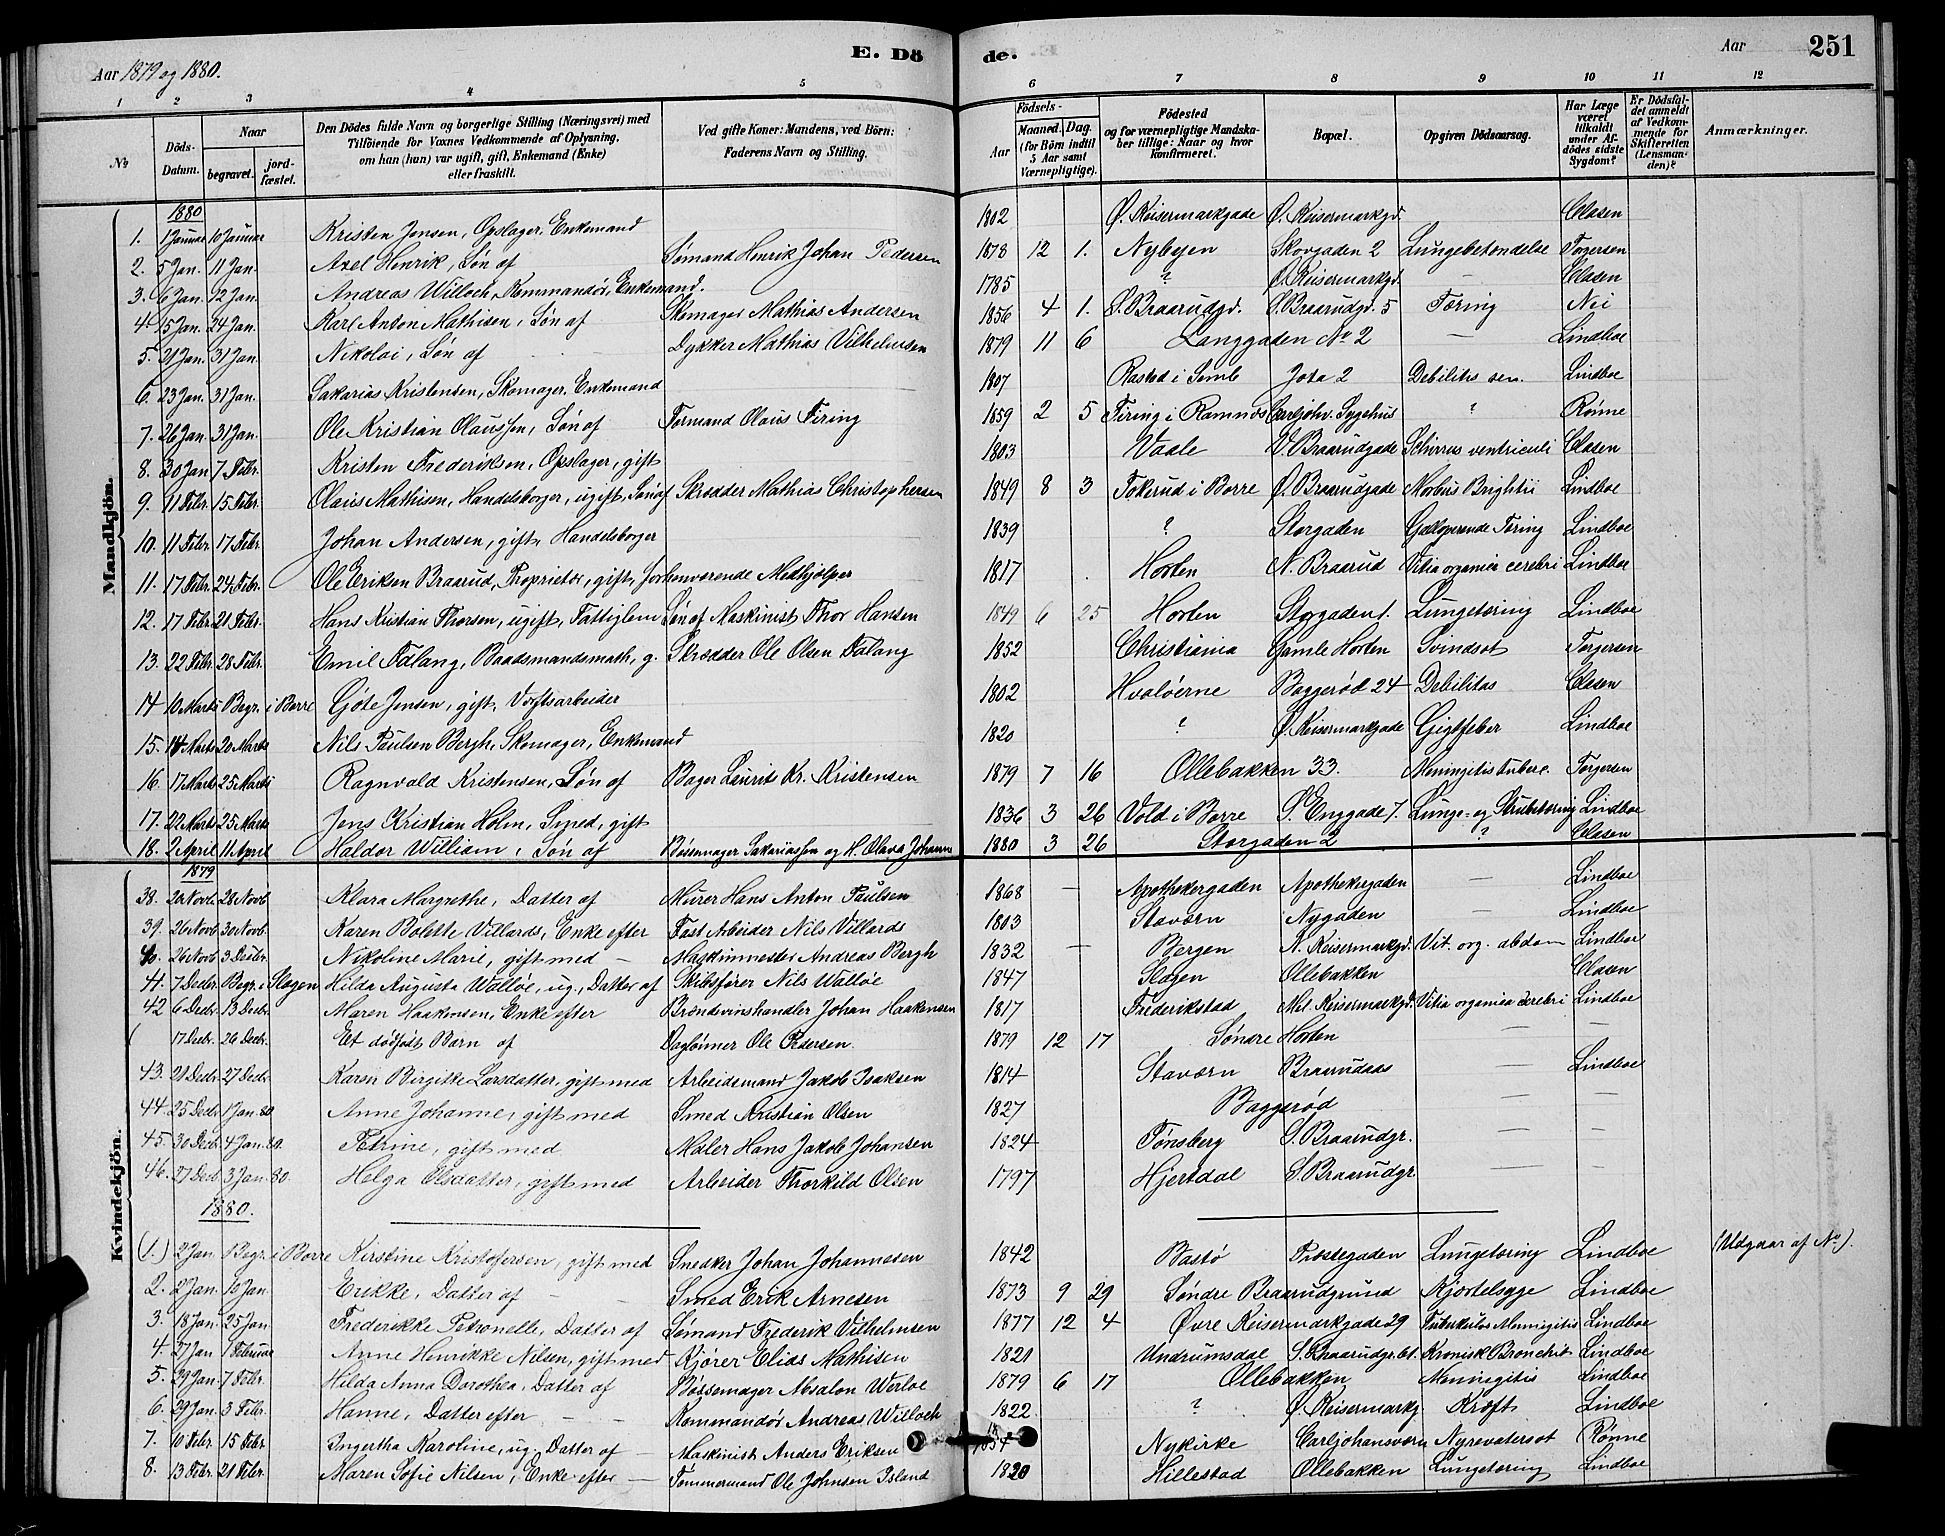 Aar 1879 og 1880.
E. Dö de.
Aar
251
1 2 3 4 5 6 7 8 9 10 11 12
№
Döds-Datum.
Naar
begravet.
jord-fæstet.
Den Dödes fulde Navn og borgerlige Stilling (Næringsvei) med
Tilföiende for Voxnes Vedkommende af Oplysning,
om han (hun) var ugift, gift, Enkemand (Enke)
eller fraskilt.
Ved gifte Koner: Mandens, ved Börn:
Faderens Navn og Stilling.
Födsels-
Aar
Maaned. Dag.
(for Börn indtil
5 Aar samt
Værnepligtige).
Födested
og for værnepligtige Mandska-
ber tillige: Naar og hvor
konfirmeret.
Bopæl.
Opgiven Dödsaarsag.
Har Læge
været
tilkaldt
under Af-
dödes sidste
Sygdom?
Er Dödsfal-
det anmeldt
af Vedkom-
mende for
Skifteretten
(Lensman-
den)?
Anmærkninger.
Mandkjön.
1880
1. 1 Januar 10 Januar Kristen Jensen, Opslager, Enkemand 1802 Ø. Keisermarkgade Ø. Keisermarkgd. — Clasen
2. 5 Jan. 11 Jan. Axel Henrik, Søn af Sømand Henrik Johan Pedersen 1878 12 1. Nybyen Skovgaden 2 Lungebetændelse Torgersen
3. 6 Jan. 12 Jan. Andreas Willoch, Kommandør, Enkemand. 1785 ? Ø. Keisermarkgd. — Clasen
4. 15 Jan. 24 Jan. Karl Anton Mathisen, Søn af Skomager Mathias Andersen 1856 4 1. S. Braarudgd. S. Braarudgd. 5 Tæring Nei
5. 21 Jan. 31 Jan. Nikolai, Søn af Dykker Mathias Vilhelmsen 1879 11 6 Langgaden No 2 — Lindboe
6. 23 Jan. 31 Jan. Sakarias Kristensen, Skomager, Enkemand 1807 Rastad i Semb Jota 2 Debilitis sen. Lindboe
7. 26 Jan. 31 Jan. Ole Kristian Olaussen, Søn af Formand Olaus Firing 1859 2 5 Firing i Ramnæs Carljohv. Sygehus ? Rønne
8. 30 Jan 7 Febr. Kristen Frederiksen, Opslager, gift 1803 Vaale V. Braarudgade Schirrus ventriculi Clasen
9. 11 Febr. 15 Febr. Olaus Mathisen, Handelsborger, ugift, Søn af Skrædder Mathias Christophersen 1849 8 3 Tokerud i Borre Ø. Braarudgade Morbus Brightii Lindboe
10. 11 Febr. 17 Febr. Johan Andersen, gift, Handelsborger 1839 ? Storgaden Galloperende Tæring Lindboe
11. 17 Febr. 24 Febr. Ole Eriksen Braarud, Proprietær, gift, forhenværende Medhjælper 1817 Horten N. Braarud Vitia organica cerebri Lindboe
12. 17 Febr. 21 Febr. Hans Kristian Thorsen, ugift, Fattiglem Søn af Maskinist Thor Hansen 1849 6 25 Horten Storgaden 1. Lungetæring Lindboe
13. 22 Febr. 28 Febr. Emil Falang, Baadsmandsmath, g. Skrædder Ole Olsen Falang 1852 Christiania Gamle Horten Svindsot Torgersen
14 10 Marts Begr. i Borre Gjøte Jensen, gift, Værftsarbeider 1802 Hvaløerne Baggerød 24 Debilitas Clasen
15. 14 Marts 20 Marts Nils Paulsen Bergh, Skomager, Enkemand 1820 ? Ø. Keisermarkgade Gigtfeber Lindboe
16. 17 Marts 25 Marts Ragnvald Kristensen, Søn af Bager Laurits Kr. Kristensen 1879 7 16 Ollebakken 33. Meningitis tuberc. Torgersen
17. 22 Marts 25 Marts Jens Kristian Holm, Smed, gift 1836 3 26 Vold i Borre S. Enggade 7. Lunge- og Strubetæring Lindboe
18. 2 April 11 April Haldor William, Søn af Bøssemager Sakariassen og H. Olava Johanne 1880 3 26 Storgaden 2 ? Clasen
Kvindekjön.
1879
38. 20 Novb. 28 Novb Klara Margrethe, Datter af Murer Hans Anton Paulsen 1868 — Apothekergaden Apothekergaden — Lindboe
39. 26 Novb 30 Novb. Karen Bolette Villards, Enke efter Fast Arbeider Nils Villards 1803 Staværn Nygaden — Lindboe
40. 26 Novb 3 Decbr. Nikoline Marie, gift med — Maskinmester Andreas Bergh 1832 — Bergen N. Keisermarkgd. Vit. org. abdom Lindboe
41. 7 Decbr. Begr. i Slagen Hilda Augusta Walløe, ug., Datter af Skibsfører Nils Walløe 1847 Slagen Ollebakken Clasen
42 6 Decbr 13 Decbr. Maren Haakensen, Enke efter Brændevinshandler Johan Haakensen 1817 Frederikstad Mel. Keisermarkgd. Vitia organica cerebri Lindboe
( 17 Decbr. 26 Decbr. Et dødfødt Barn af Daglønner Ole Pedersen. 1879 12 17 Søndre Horten — —
43. 21 Decbr. 27 Decbr Karen Birgitte Larsdatter, gift med Arbeidsmand Jakob Isaksen 1814 Staværn Braarudaas — Lindboe
44. 25 Decbr. 1 Jan. 80. Anne Johanne, gift med Smed Kristian Olsen 1827 Baggerød — —
45. 30 Decbr. 4 Jan. 80. Petrine, gift med Maler Hans Jakob Johansen 1824 Tønsberg S. Braarudgr. — —
46. 27 Decb. 3 Jan. 80. Helga Olsdatter, gift med Arbeider Thorkild Olsen 1797 Hjertdal S. Braarudgr —
1880.
(1.) 2 Jan. Begr. i Borre Kirstine Kristofersen, gift med Snedker Johan Johannesen 1842 Bastø Præstegaden Lungetæring Lindboe (Udgaar af No).
2. 2 Jan. 10 Jan. Erikke, Datter af — — Smed Erik Arnesen 1873 9 29 Søndre Braarudgrund Kjertelsyge Lindboe
3. 18 Jan. 25 Jan. Frederikke Petronelle, Datter af Sømand Frederik Vilhelmsen 1877 12 4 Øvre Keisermarkgade 29 Tuberkulos Meningitis Lindboe
4 27 Jan 1 Februar Anne Henrikke Nilsen, gift med Kjører Elias Mathisen 1821 Undrumsdal S. Braarudgr. 61. Kronisk Bronchit Lindboe
5. 29 Jan. 7 Febr. Hilda Anna Dorothea, Datter af Bøssemager Absalon Werløe 1879 6 17 Ollebakken Meningitis Lindboe
6. 29 Jan. 3 Febr. Hanne, Datter efter — — Kommandør Andreas Willoch 1822. ? Ø. Keisermarkg Kræft Lindboe
7. 10 Febr. 15 Febr. Ingertha Karoline, ug. Datter af — Maskinist Anders Eriksen Nykirke Carljohansværn Nyrevatersot Rønne
8. 13 Febr. 21 Febr. Maren Sofie Nilsen, Enke efter — Tømmermand Ole Johnsen Island 1820 Hillestad Ollebakken Lungetæring Lindboe